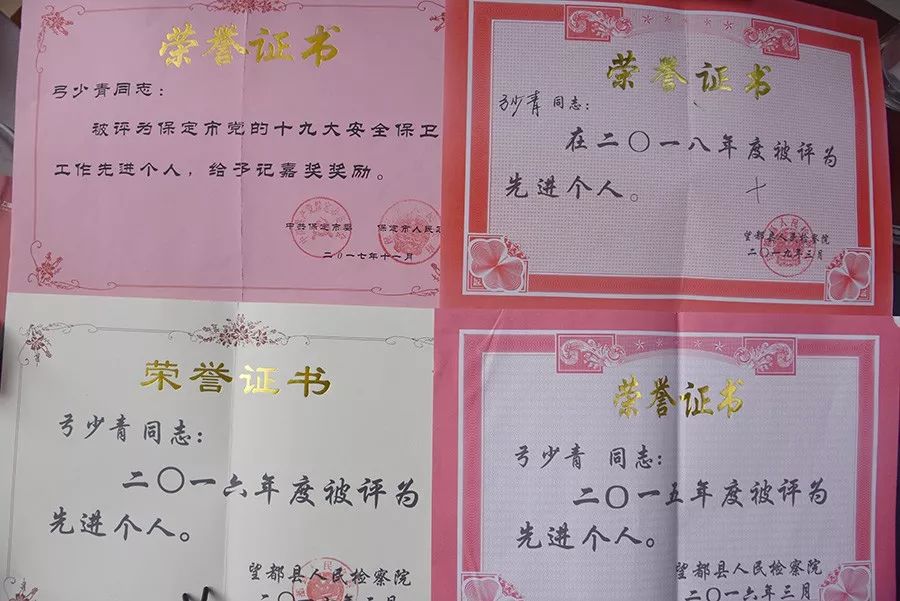 荣誉证书
弓少青同志：
被评为保定市党的十九大安全保卫
工作先进个人，给予记嘉奖奖励。
中共保定市委 保定市人民
二〇一七年十一月
荣誉证书
弓少青 同志：
在二〇一八年度被评为
先进个人。
望都县人民检察院
二〇一九年三月
荣誉证书
弓少青 同志：
二〇一六年度被评为
先进个人。
望都县人民检察院
荣誉证书
弓少青 同志：
二〇一五年度被评为
先进个人。
望都县人民检察院
二〇一六年三月